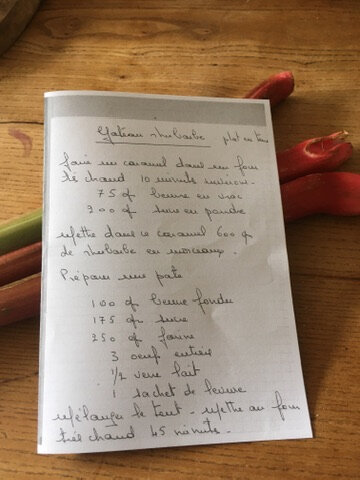 Gateau rhubarbe plat en terre
faire un caramel dans un four
très chaud 10 minutes environ -
75 gr beurre en
200 gr sucre en poudre
mettre dans ce caramel 600 gr
de rhubarbe en morceaux.
Préparer une pate
100 gr beurre fondu
175 gr sucre
250 gr farine
3 oeuf entiers
1/2 verre lait
1 sachet de levure
Mélanger le tout - mettre au four
très chaud 45 minutes -